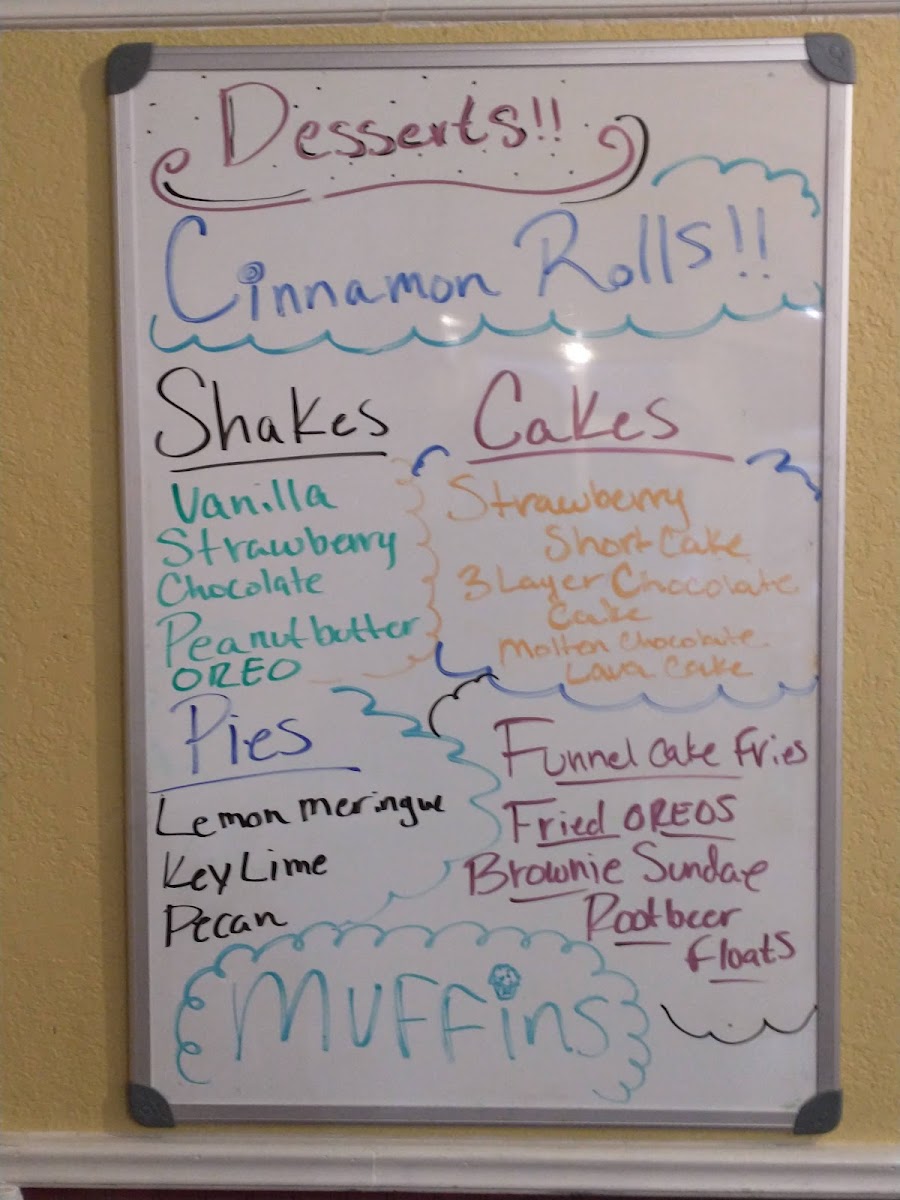 Desserts!!
Cinnamon Rolls!!
Shakes
Vanilla
Strawberry
Chocolate
Peanutbutter
OREO
Cakes
Strawberry
Short Cake
3 Layer Chocolate
Cake
Molten Chocolate
Lava Cake
Pies
Lemon meringue
Key Lime
Pecan
Funnel cake fries
Fried OREOS
Brownie Sundae
Rootbeer
floats
Muffins